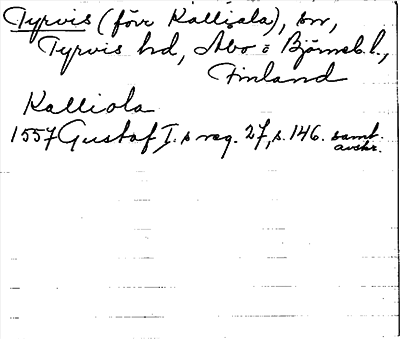 Tyrvis (förr Kalliala), sn,
Tyrvis hd, Åbo o Björneb. l.,
Finland
Kalliola
1557 Gustaf I.s reg. 27, s. 146. samt.
avskr.